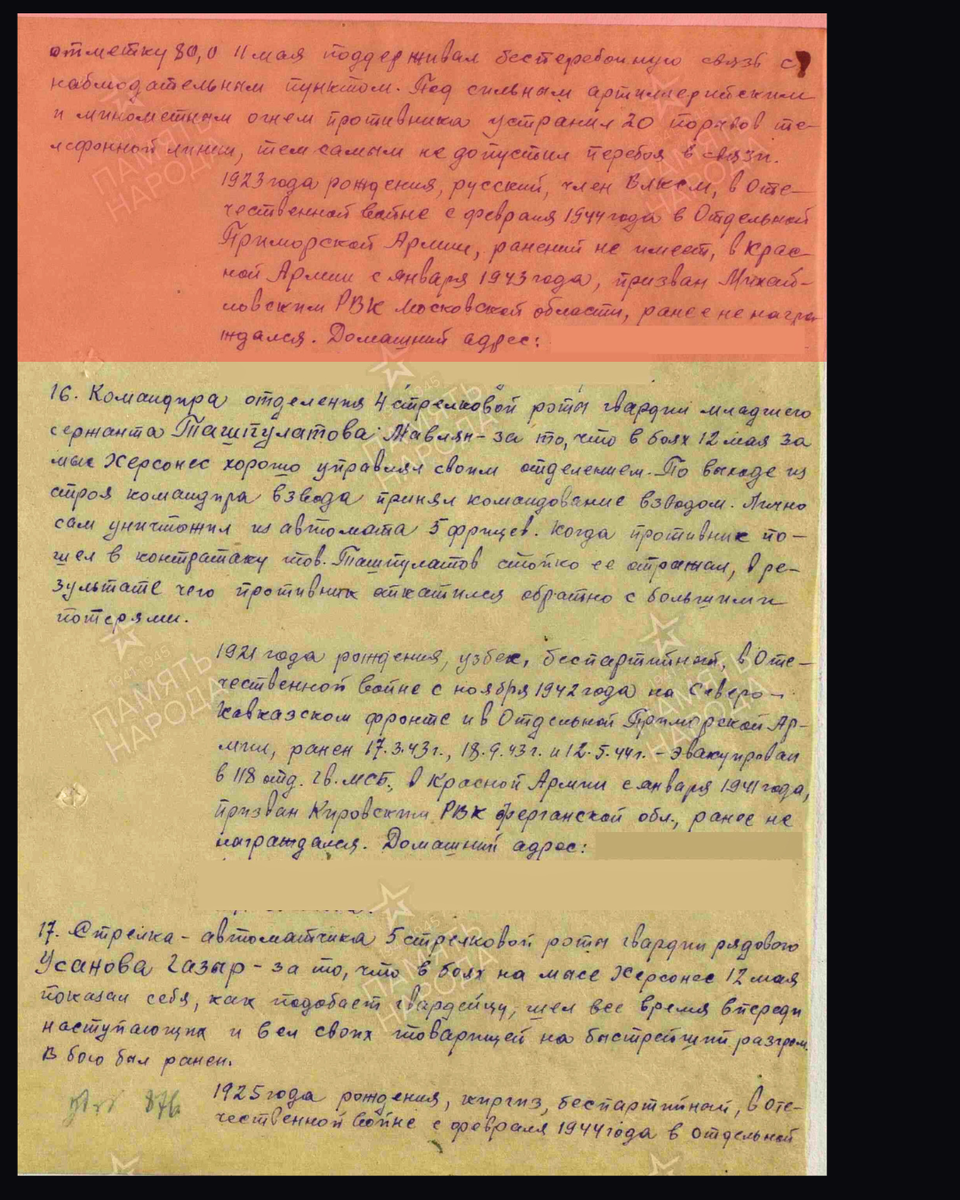 отметку 80,0 11 мая поддерживал бесперебойную связь с
наблюдательным пунктом. Под сильным артиллерийским
и минометным огнем противника устранил 20 порывов те-
лефонной линии, тем самым не допустил перебоя в связи.
1923 года рождения, русский, член ВЛКСМ, в Оте-
чественной войне с февраля 1944 года в Отдельной
Приморской Армии, ранений не имеет, в Крас-
ной Армии с января 1943 года, призван Михай-
ловским РВК Московской области, ранее не награ-
ждался. Домашний адрес:
16. Командира отделения 4 стрелковой роты гвардии младшего
сержанта Ташпулатова Мавлян - за то, что в боях 12 мая за
мыс Херсонес хорошо управлял своим отделением. По выходе из
строя командира взвода принял командование взводом. Лично
сам уничтожил из автомата 5 фрицев. Когда противник по-
шел в контратаку тов. Ташпулатов стойко ее отражал, в ре-
зультате чего противник откатился обратно с большими
потерями.
1921 года рождения, узбек, беспартийный, в Оте-
чественной войне с ноября 1942 года на Северо-
Кавказском фронте и в Отдельной Приморской Ар-
мии, ранен 17.3.43г., 18.9.43г. и 12.5.44г. - эвакуирован
в 118 отд. гв. МСБ, в Красной Армии с января 1941 года,
призван Кировским РВК Ферганской обл., ранее не
награждался. Домашний адрес:
17. Стрелка - автоматчика 5 стрелковой роты гвардии рядового
Усанова Газыр - за то, что в боях на мысе Херсонес 12 мая
показал себя, как подобает гвардейцу, шел все время впереди
наступающих и вел своих товарищей на быстрейший разгром.
В бою был ранен.
1925 года рождения, киргиз, беспартийный, в Оте-
чественной войне с февраля 1944 года в Отдельной
ПАМЯТЬ НАРОДА